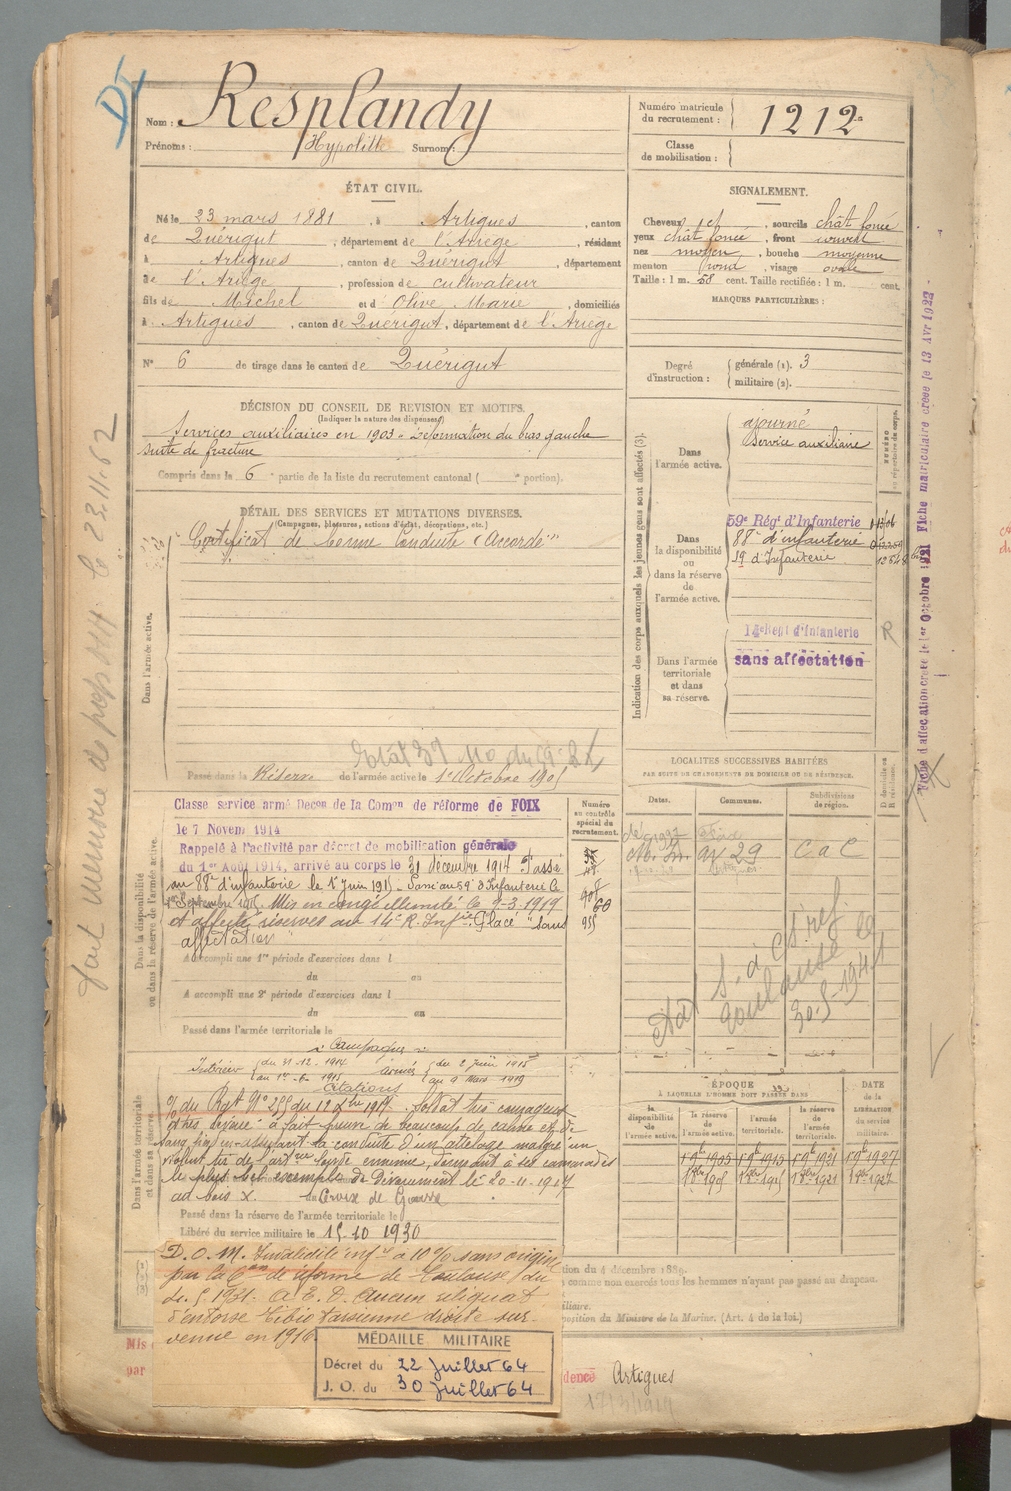 Nom : Resplandy
Prénoms : Hypolitte Surnom :
Numéro matricule du recrutement : 1212
Classe de mobilisation :
ÉTAT CIVIL.
Né le 23 mars 1881, à Artigues, canton
de Quérigut, département de l'Ariège, résidant
à Artigues, canton de Quérigut, département
de l'Ariège, profession de cultivateur
fils de Michel et d Olive Marie, domiciliés
à Artigues, canton de Quérigut, département de l'Ariège
N° 6 de tirage dans le canton de Quérigut
SIGNALEMENT.
Cheveux et, sourcils chât foncé
yeux chât foncé, front couvert
nez moyen, bouche moyenne
menton rond, visage ovale
Taille : 1 m. 58 cent. Taille rectifiée : 1 m. cent.
MARQUES PARTICULIÈRES :
Degré d'instruction : générale (1). 3
militaire (2).
DÉCISION DU CONSEIL DE REVISION ET MOTIFS.
(Indiquer la nature des dispenses)
Services auxiliaires en 1903 - Déformation du bras gauche
suite de fracture
Compris dans la 6e partie de la liste du recrutement cantonal ( e portion).
DÉTAIL DES SERVICES ET MUTATIONS DIVERSES.
(Campagnes, blessures, actions d'éclat, décorations, etc.)
Certificat de bonne conduite "Accordé"
Dans l'armée active.
Passé dans la Réserve de l'armée active le 1er Octobre 1905
Indication des corps auxquels les jeunes gens sont affectés (3).
Dans l'armée active.
ajourné
Service auxiliaire
Dans la disponibilité ou dans la réserve de l'armée active.
59e Régt d'Infanterie
88e d'infanterie
59 d'Infanterie
Dans l'armée territoriale et dans sa réserve.
14e Regt d'Infanterie
sans affectation
R
Fiche matriculaire créée le 13 Avr 1922
LOCALITÉS SUCCESSIVES HABITÉES
PAR SUITE DE CHANGEMENTS DE DOMICILE OU DE RÉSIDENCE.
Dates. Communes. Subdivisions de région.
D domicile ou R résidence.
Classé service armé Décon de la Comon de réforme de FOIX
le 7 Novem 1914
Rappelé à l'activité par décret de mobilisation générale
du 1er Août 1914, arrivé au corps le 31 décembre 1914 Passé
au 88e d'infanterie le 1er juin 1915 - Passé au 59e d'Infanterie le
1er Septembre 1915. Mis en congé illimité le 9-3-1919
et affecté réserves au 14e R. Infie. Placé "sans
affectation"
Numéro au contrôle spécial du recrutement.
Dans la disponibilité ou dans la réserve de l'armée active.
A accompli une 1re période d'exercices dans l
du au
A accompli une 2e période d'exercices dans l
du au
Passé dans l'armée territoriale le
Campagnes
Intérieur du 31-12-1914 au 1er-6-1915
Armées du 2 juin 1915 au 9 Mars 1919
Citations
Dans l'armée territoriale et dans sa réserve.
O/ du Rgt N° 255 du 12 Xbre 1917. Soldat très courageux
et très dévoué : a fait preuve de beaucoup de calme et de
sang froid en assurant la conduite d'un attelage malgré un
violent tir de l'artrie lourde ennemie, donnant à ses camarades
le plus bel exemple de dévouement le 20-11-1917
au bois X. Croix de Guerre
Passé dans la réserve de l'armée territoriale le
Libéré du service militaire le 15-10 1930
ÉPOQUE
À LAQUELLE L'HOMME DOIT PASSER DANS
la disponibilité de l'armée active.
la réserve de l'armée active.
l'armée territoriale.
la réserve de l'armée territoriale.
DATE de la LIBÉRATION du service militaire.
1 9bre 1905 1 9bre 1915 1 9bre 1921 1 9bre 1927
D.O.M. Invalidité infre à 10% sans origine
par la Con de réforme de Toulouse du
A.E.D. Aucun reliquat
d'entorse tibio tarsienne droite survenue en 1916
MÉDAILLE MILITAIRE
Décret du 22 Juillet 64
J. O. du 30 Juillet 64
du 4 décembre 1889.
comme non exercés tous les hommes n'ayant pas passé au drapeau.
position du Ministre de la Marine. (Art. 4 de la loi.)
Artigues